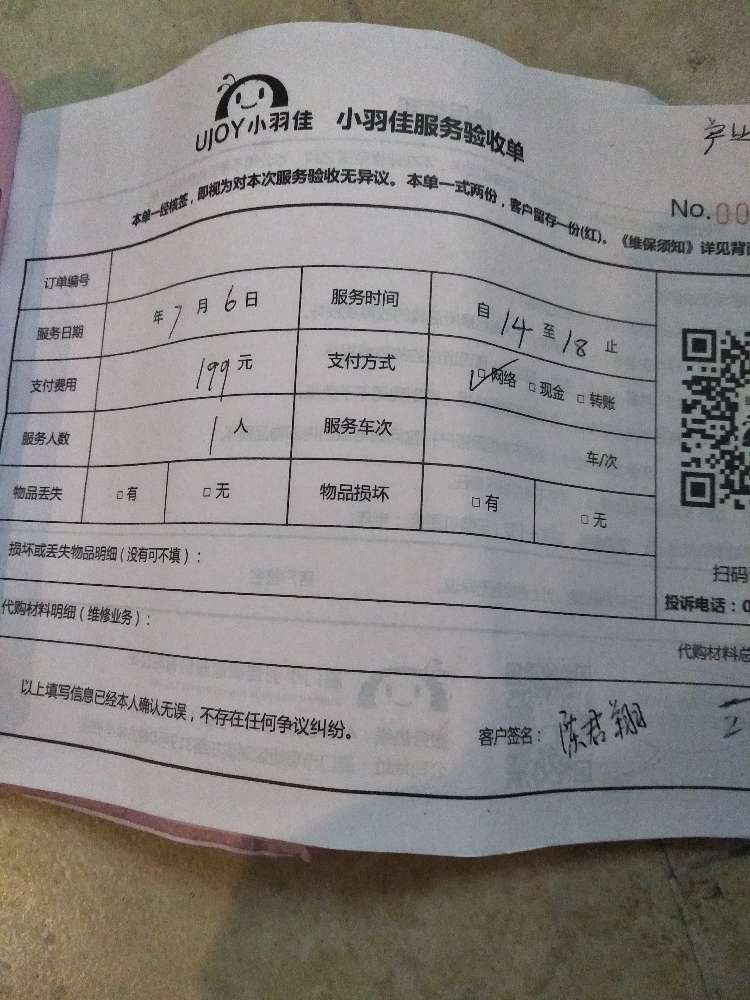 UJOY小羽佳 小羽佳服务验收单
本单一经核签，即视为对本次服务验收无异议。本单一式两份，客户留存一份(红)。《维保须知》详见背
No.00
订单编号
服务日期 年 7 月 6 日 服务时间 自 14 至 18 止
支付费用 199 元 支付方式 □网络 □现金 □转账
服务人数 1 人 服务车次 车/次
物品丢失 □有 □无 物品损坏 □有 □无
损坏或丢失物品明细（没有可不填）：
扫码
投诉电话：0
代购材料明细（维修业务）：
代购材料总
以上填写信息已经本人确认无误，不存在任何争议纠纷。
客户签名：陈君翔